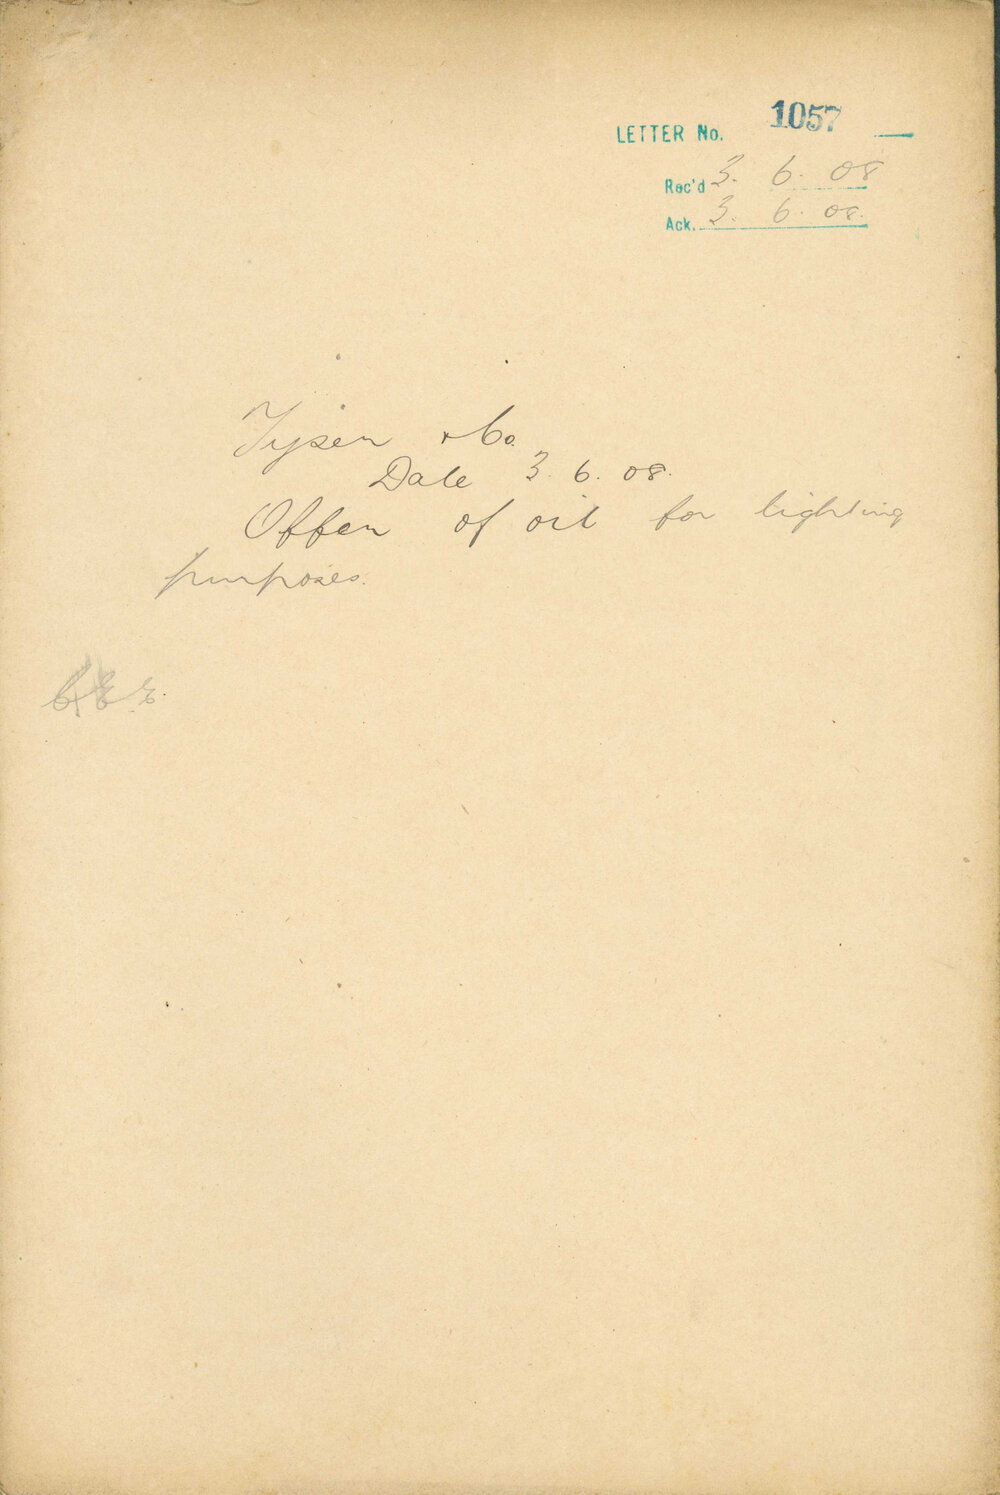 LETTER No. 1057
Rec'd 3. 6. 08
Ack. 3. 6. 08.
Tysen & Co.
Date 3. 6. 08.
Offer of oil for lighting
purposes.